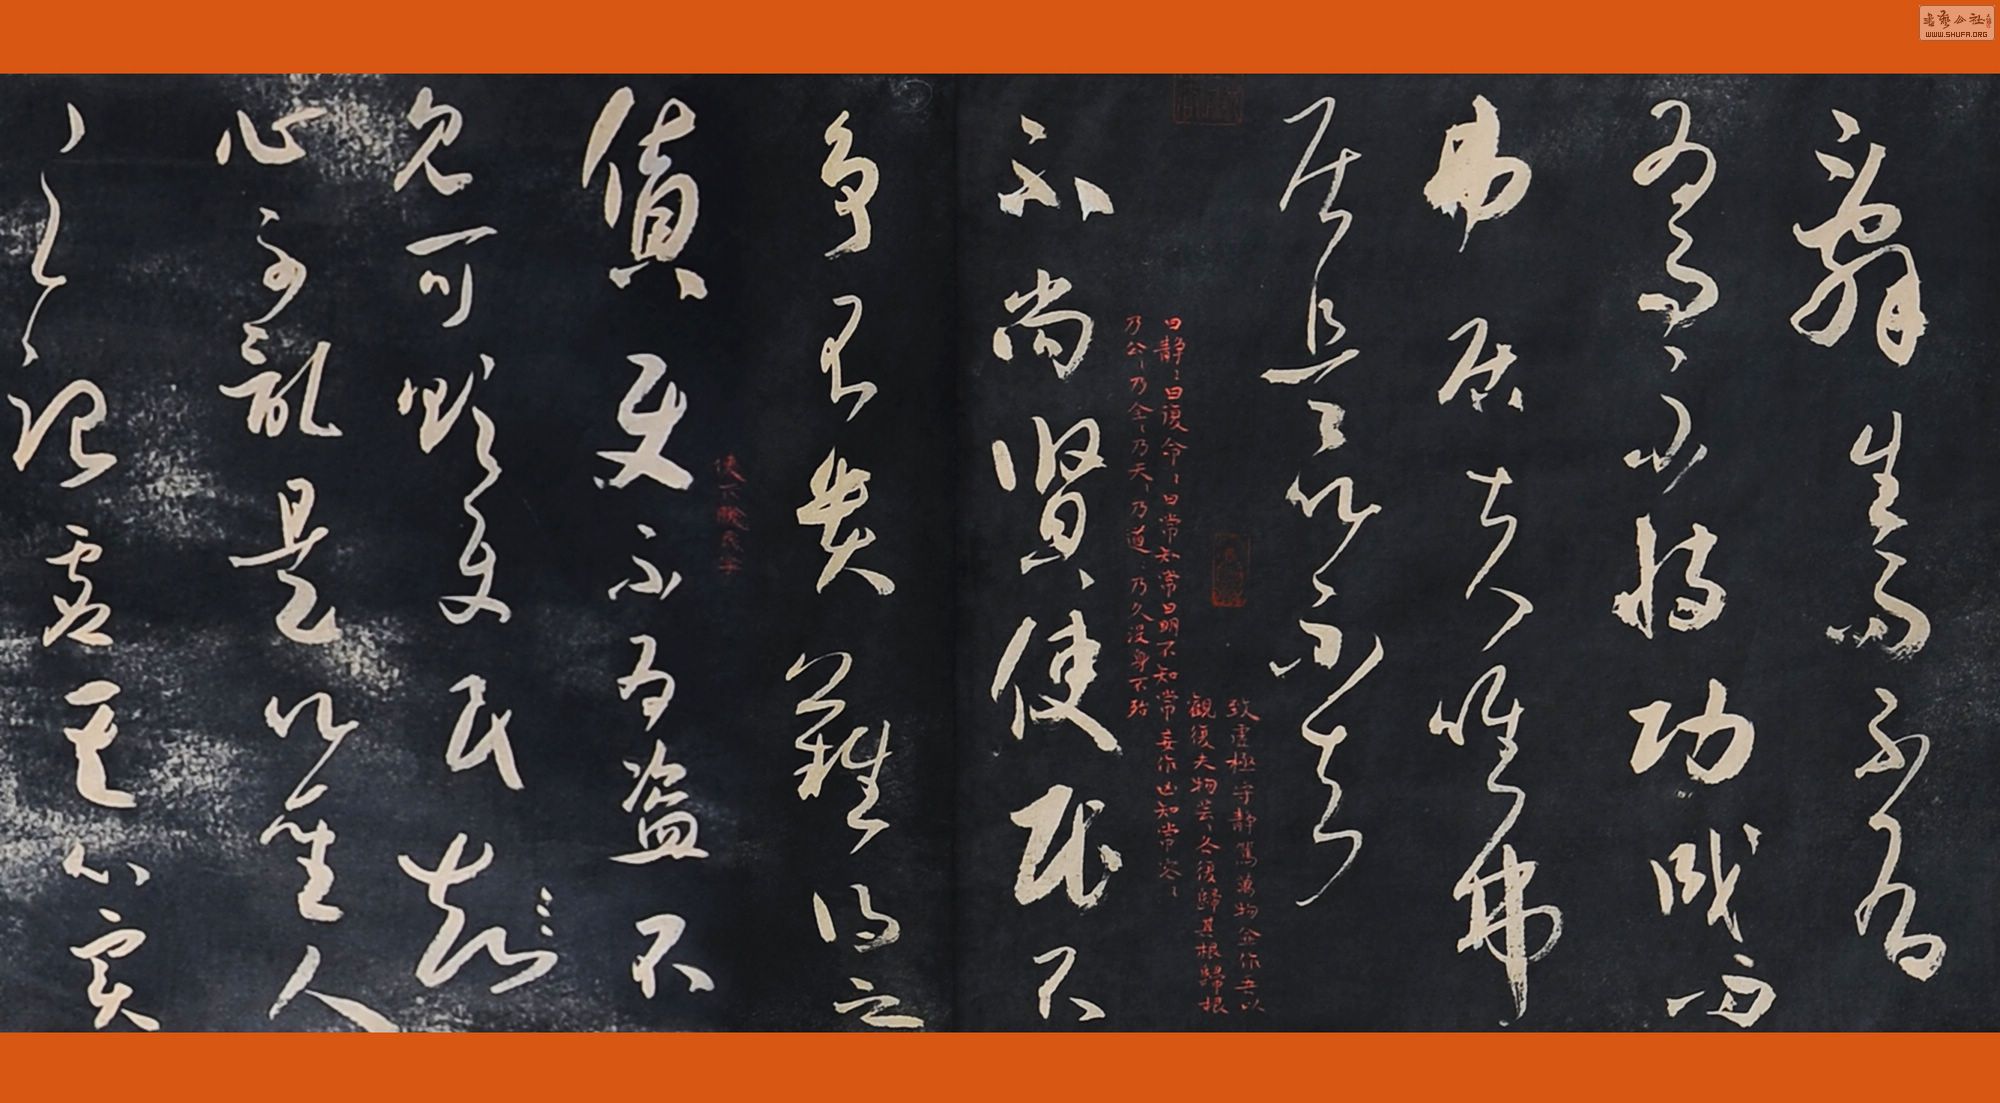 辭生而不有
為而不恃功成而
弗居夫唯弗
居是以不去
致虛極守靜篤萬物並作吾以
觀復夫物芸〻各復歸其根歸根
曰靜〻曰復命〻曰常知常曰明不知常妄作凶知常容〻
乃公〻乃全〻乃天〻乃道〻乃久沒身不殆
不尚賢使民不
爭不貴難得之
使下脫民字
貨使不為盜不
見可欲使民
心不亂是以聖人
之治虛其心實
書藝公社
WWW.SHUFA.ORG